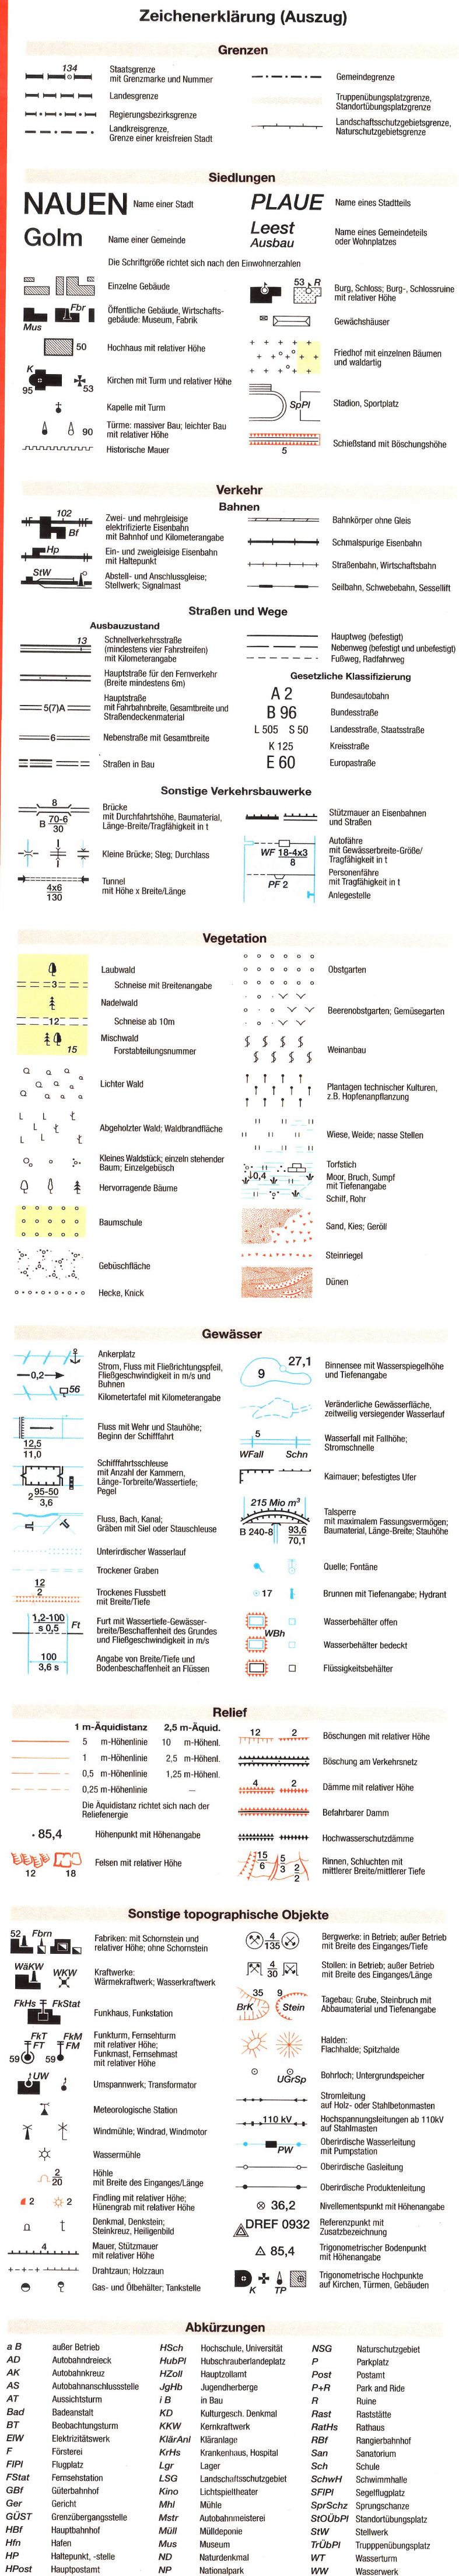 Zeichenerklärung (Auszug)
Grenzen
134
Staatsgrenze
mit Grenzmarke und Nummer
Landesgrenze
Regierungsbezirksgrenze
Landkreisgrenze,
Grenze einer kreisfreien Stadt
Gemeindegrenze
Truppenübungsplatzgrenze,
Standortübungsplatzgrenze
Landschaftsschutzgebietsgrenze,
Naturschutzgebietsgrenze
Siedlungen
NAUEN Name einer Stadt
Golm Name einer Gemeinde
PLAUE Name eines Stadtteils
Leest
Ausbau
Name eines Gemeindeteils
oder Wohnplatzes
Die Schriftgröße richtet sich nach den Einwohnerzahlen
Einzelne Gebäude
Fbr
Mus
Öffentliche Gebäude, Wirtschafts-
gebäude: Museum, Fabrik
50 Hochhaus mit relativer Höhe
K
95 53
Kirchen mit Turm und relativer Höhe
Kapelle mit Turm
90
Türme: massiver Bau; leichter Bau
mit relativer Höhe
Historische Mauer
53 R
Burg, Schloss; Burg-, Schlossruine
mit relativer Höhe
Gewächshäuser
Friedhof mit einzelnen Bäumen
und waldartig
SpPl
Stadion, Sportplatz
5
Schießstand mit Böschungshöhe
Verkehr
Bahnen
102
Bf
Zwei- und mehrgleisige
elektrifizierte Eisenbahn
mit Bahnhof und Kilometerangabe
Hp
Ein- und zweigleisige Eisenbahn
mit Haltepunkt
StW
Abstell- und Anschlussgleise;
Stellwerk; Signalmast
Bahnkörper ohne Gleis
Schmalspurige Eisenbahn
Straßenbahn, Wirtschaftsbahn
Seilbahn, Schwebebahn, Sessellift
Straßen und Wege
Ausbauzustand
13
Schnellverkehrsstraße
(mindestens vier Fahrstreifen)
mit Kilometerangabe
Hauptstraße für den Fernverkehr
(Breite mindestens 6m)
5(7)A
Hauptstraße
mit Fahrbahnbreite, Gesamtbreite und
Straßendeckenmaterial
6 Nebenstraße mit Gesamtbreite
Straßen in Bau
Hauptweg (befestigt)
Nebenweg (befestigt und unbefestigt)
Fußweg, Radfahrweg
Gesetzliche Klassifizierung
A 2 Bundesautobahn
B 96 Bundesstraße
L 505 S 50 Landesstraße, Staatsstraße
K 125 Kreisstraße
E 60 Europastraße
Sonstige Verkehrsbauwerke
8
B 70-6
30
Brücke
mit Durchfahrtshöhe, Baumaterial,
Länge-Breite/Tragfähigkeit in t
Kleine Brücke; Steg; Durchlass
4x6
130
Tunnel
mit Höhe x Breite/Länge
Stützmauer an Eisenbahnen
und Straßen
WF 18-4x3
8
Autofähre
mit Gewässerbreite-Größe/
Tragfähigkeit in t
PF 2
Personenfähre
mit Tragfähigkeit in t
Anlegestelle
Vegetation
Laubwald
3 Schneise mit Breitenangabe
Nadelwald
12 Schneise ab 10m
Mischwald
15 Forstabteilungsnummer
Lichter Wald
Abgeholzter Wald; Waldbrandfläche
Kleines Waldstück; einzeln stehender
Baum; Einzelgebüsch
Hervorragende Bäume
Baumschule
Gebüschfläche
Hecke, Knick
Obstgarten
Beerenobstgarten; Gemüsegarten
Weinanbau
Plantagen technischer Kulturen,
z.B. Hopfenanpflanzung
Wiese, Weide; nasse Stellen
Torfstich
0,4
Moor, Bruch, Sumpf
mit Tiefenangabe
Schilf, Rohr
Sand, Kies; Geröll
Steinriegel
Dünen
Gewässer
Ankerplatz
0,2
Strom, Fluss mit Fließrichtungspfeil,
Fließgeschwindigkeit in m/s und
Buhnen
56 Kilometertafel mit Kilometerangabe
12,5
11,0
Fluss mit Wehr und Stauhöhe;
Beginn der Schifffahrt
2 95-50
3,6
Schifffahrtsschleuse
mit Anzahl der Kammern,
Länge-Torbreite/Wassertiefe;
Pegel
Fluss, Bach, Kanal;
Gräben mit Siel oder Stauschleuse
Unterirdischer Wasserlauf
Trockener Graben
12
2
Trockenes Flussbett
mit Breite/Tiefe
1,2-100
s 0,5
Ft
Furt mit Wassertiefe-Gewässer-
breite/Beschaffenheit des Grundes
und Fließgeschwindigkeit in m/s
100
3,6 s
Angabe von Breite/Tiefe und
Bodenbeschaffenheit an Flüssen
9 27,1
Binnensee mit Wasserspiegelhöhe
und Tiefenangabe
Veränderliche Gewässerfläche,
zeitweilig versiegender Wasserlauf
5
WFall Schn
Wasserfall mit Fallhöhe;
Stromschnelle
Kaimauer; befestigtes Ufer
215 Mio m³
B 240-8 93,6
70,1
Talsperre
mit maximalem Fassungsvermögen;
Baumaterial, Länge-Breite; Stauhöhe
Quelle; Fontäne
17 Brunnen mit Tiefenangabe; Hydrant
Wasserbehälter offen
WBh
Wasserbehälter bedeckt
Flüssigkeitsbehälter
Relief
1 m-Äquidistanz 2,5 m-Äquid.
5 m-Höhenlinie 10 m-Höhenl.
1 m-Höhenlinie 2,5 m-Höhenl.
0,5 m-Höhenlinie 1,25 m-Höhenl.
0,25 m-Höhenlinie —
Die Äquidistanz richtet sich nach der
Reliefenergie
85,4 Höhenpunkt mit Höhenangabe
12 18
Felsen mit relativer Höhe
12 2
Böschungen mit relativer Höhe
Böschung am Verkehrsnetz
4 2
Dämme mit relativer Höhe
Befahrbarer Damm
Hochwasserschutzdämme
15
6
5
3
2
2
Rinnen, Schluchten mit
mittlerer Breite/mittlerer Tiefe
Sonstige topographische Objekte
52 Fbrn
Fabriken: mit Schornstein und
relativer Höhe; ohne Schornstein
WäKW WKW
Kraftwerke:
Wärmekraftwerk; Wasserkraftwerk
FkHs FkStat
Funkhaus, Funkstation
FkT FkM
FT FM
59 59
Funkturm, Fernsehturm
mit relativer Höhe;
Funkmast, Fernsehmast
mit relativer Höhe
UW
Umspannwerk; Transformator
Meteorologische Station
Windmühle; Windrad, Windmotor
Wassermühle
2
20
Höhle
mit Breite des Einganges/Länge
2 2
Findling mit relativer Höhe;
Hünengrab mit relativer Höhe
Denkmal, Denkstein;
Steinkreuz, Heiligenbild
4
Mauer, Stützmauer
mit relativer Höhe
Drahtzaun; Holzzaun
Gas- und Ölbehälter; Tankstelle
4
135
Bergwerke: in Betrieb; außer Betrieb
mit Breite des Einganges/Tiefe
4
30
Stollen: in Betrieb; außer Betrieb
mit Breite des Einganges/Länge
35 9
BrK Stein
Tagebau; Grube, Steinbruch mit
Abbaumaterial und Tiefenangabe
Halden:
Flachhalde; Spitzhalde
UGrSp
Bohrloch; Untergrundspeicher
Stromleitung
auf Holz- oder Stahlbetonmasten
110 kV
Hochspannungsleitungen ab 110kV
auf Stahlmasten
PW
Oberirdische Wasserleitung
mit Pumpstation
Oberirdische Gasleitung
Oberirdische Produktenleitung
36,2 Nivellementspunkt mit Höhenangabe
DREF 0932
Referenzpunkt mit
Zusatzbezeichnung
85,4
Trigonometrischer Bodenpunkt
mit Höhenangabe
K TP
Trigonometrische Hochpunkte
auf Kirchen, Türmen, Gebäuden
Abkürzungen
a B außer Betrieb
AD Autobahndreieck
AK Autobahnkreuz
AS Autobahnanschlussstelle
AT Aussichtsturm
Bad Badeanstalt
BT Beobachtungsturm
EIW Elektrizitätswerk
F Försterei
FlPl Flugplatz
FStat Fernsehstation
GBf Güterbahnhof
Ger Gericht
GÜST Grenzübergangsstelle
HBf Hauptbahnhof
Hfn Hafen
HP Haltepunkt, -stelle
HPost Hauptpostamt
HSch Hochschule, Universität
HubPl Hubschrauberlandeplatz
HZoll Hauptzollamt
JgHb Jugendherberge
i B in Bau
KD Kulturgesch. Denkmal
KKW Kernkraftwerk
KlärAnl Kläranlage
KrHs Krankenhaus, Hospital
Lgr Lager
LSG Landschaftsschutzgebiet
Kino Lichtspieltheater
Mhl Mühle
Mstr Autobahnmeisterei
Müll Mülldeponie
Mus Museum
ND Naturdenkmal
NP Nationalpark
NSG Naturschutzgebiet
P Parkplatz
Post Postamt
P+R Park and Ride
R Ruine
Rast Raststätte
RatHs Rathaus
RBf Rangierbahnhof
San Sanatorium
Sch Schule
SchwH Schwimmhalle
SFlPl Segelflugplatz
SprSchz Sprungschanze
StOÜbPl Standortübungsplatz
StW Stellwerk
TrÜbPl Trupppenübungsplatz
WT Wasserturm
WW Wasserwerk